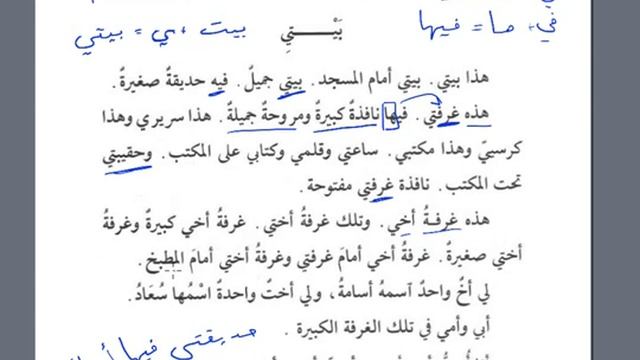 في + ها = فيها
بيت + ي = بيتي
بَيْـــتِي
هذا بيتي. بيتي أمام المسجد. بيتي جميلٌ. فيه حديقةٌ صغيرةٌ.
هذه غرفتي. فيها نافذةٌ كبيرةٌ ومروحةٌ جميلةٌ. هذا سريري وهذا
كرسيّ وهذا مكتبي. ساعتي وقلمي وكتابي على المكتب. وحقيبتي
تحت المكتب. نافذة غرفتي مفتوحة.
هذه غرفـةُ أخي. وتلك غرفةُ أختي. غرفةُ أخي كبيرةٌ وغرفةُ
أختي صغيرةٌ. غرفةُ أخي أمامَ غرفتي وغرفةُ أختي أمامَ المطبخ.
لي أخٌ واحدٌ آسمهُ أسامةُ، ولي أختٌ واحدةٌ اسْمُها سُعَادُ.
أبي وأمي في تلك الغرفة الكبيرة.
حديقتي فيها